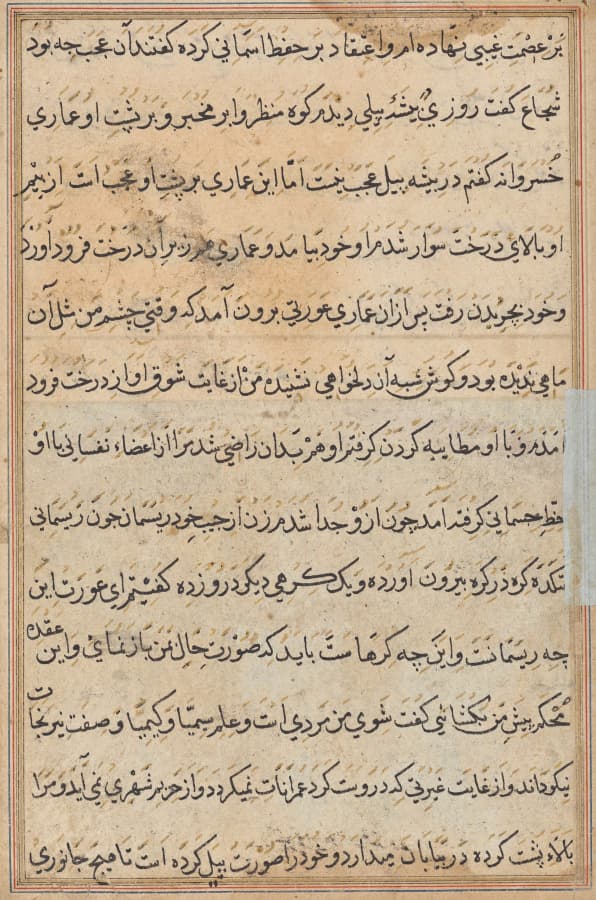 بر عصمت غیبی نهاده ام و اعتقاد بر حفظ اسمانی کرده کفتند آن عجب چه بود
شجاع کفت روزی بیشهٔ پیلی دیدم کوه منظر و ابر مخبر و بر پشت او عماری
خسروانه کفتم در بیشه پیل عجب نیست اما این عماری بر پشت او عجب است از بیم
او بالای درخت سوار شدم او خود بیامد و عماری هم زیر آن درخت فرود آورد
و خود بچریدن رفت پس ازان عماری عورتی برون آمد که وقتی چشم من مثل آن
ماهی ندیده بود و کوش شبه آن دلخواهی نشنیده من از غایت شوق او از درخت فرود
امدم و با او مطایبه کردن کرفتم او هم بدان راضی شد مرا از اعضاء نفسانی با او
حظ جسمانی کرفته آمد چون ازو جدا شدم زن از جیب خود ریسمان چون ریسمانی
تنکده کره در کره بیرون آورده و یک کرهی دیکر درو زده کفتم ای عورت این
چه ریسمانست و این چه کرهاست باید که صورت حال من باز نمای و این عقده
محکم پیش من بکشائی کفت شوی من مردی است و علم سیمیا و کیمیا و صفت نیرنجات
نیکو داند و از غایت غیرتی که دروست کرد عمرانات نمیکردد و از حزیر شهری نمی آید و مرا
بالاء پشت کرده در بیابان میدارد و خود را صورت پیل کرده است تا هیچ جانوری